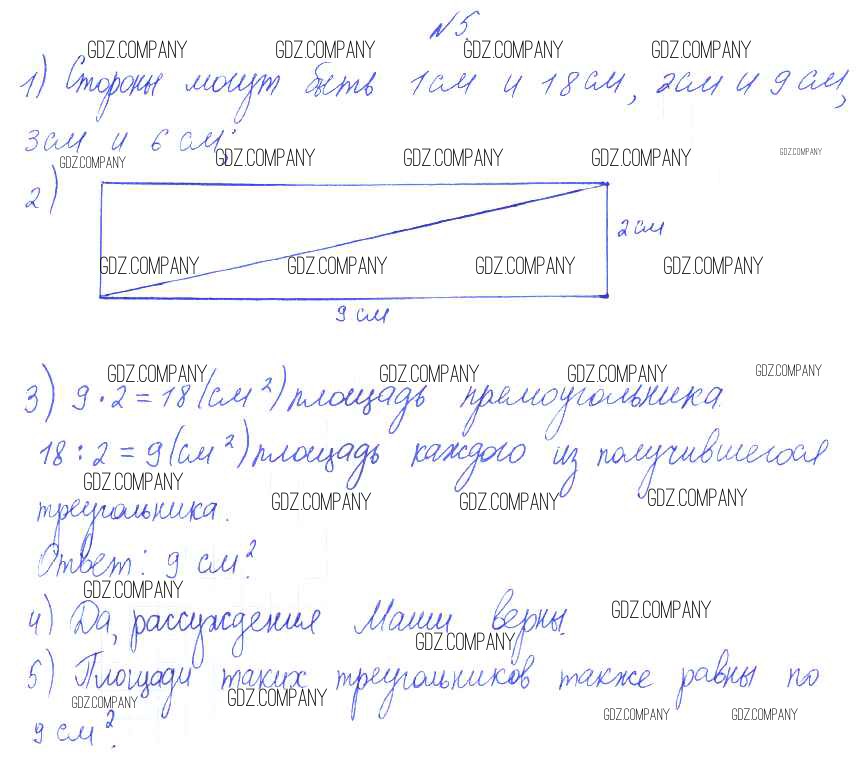 №5.
GDZ.COMPANY GDZ.COMPANY GDZ.COMPANY GDZ.COMPANY
1) Стороны могут быть 1 см и 18 см, 2 см и 9 см,
3 см и 6 см;
GDZ.COMPANY GDZ.COMPANY GDZ.COMPANY GDZ.COMPANY GDZ.COMPANY
2)
2 см
GDZ.COMPANY GDZ.COMPANY GDZ.COMPANY GDZ.COMPANY
9 см
GDZ.COMPANY GDZ.COMPANY GDZ.COMPANY GDZ.COMPANY
3) 9 · 2 = 18 (см²) площадь прямоугольника.
18 : 2 = 9 (см²) площадь каждого из получившегося
GDZ.COMPANY GDZ.COMPANY GDZ.COMPANY GDZ.COMPANY
треугольника.
Ответ: 9 см².
GDZ.COMPANY GDZ.COMPANY
4) Да, рассуждения Маши верны.
GDZ.COMPANY
5) Площади таких треугольников также равны по
GDZ.COMPANY GDZ.COMPANY GDZ.COMPANY GDZ.COMPANY
9 см².